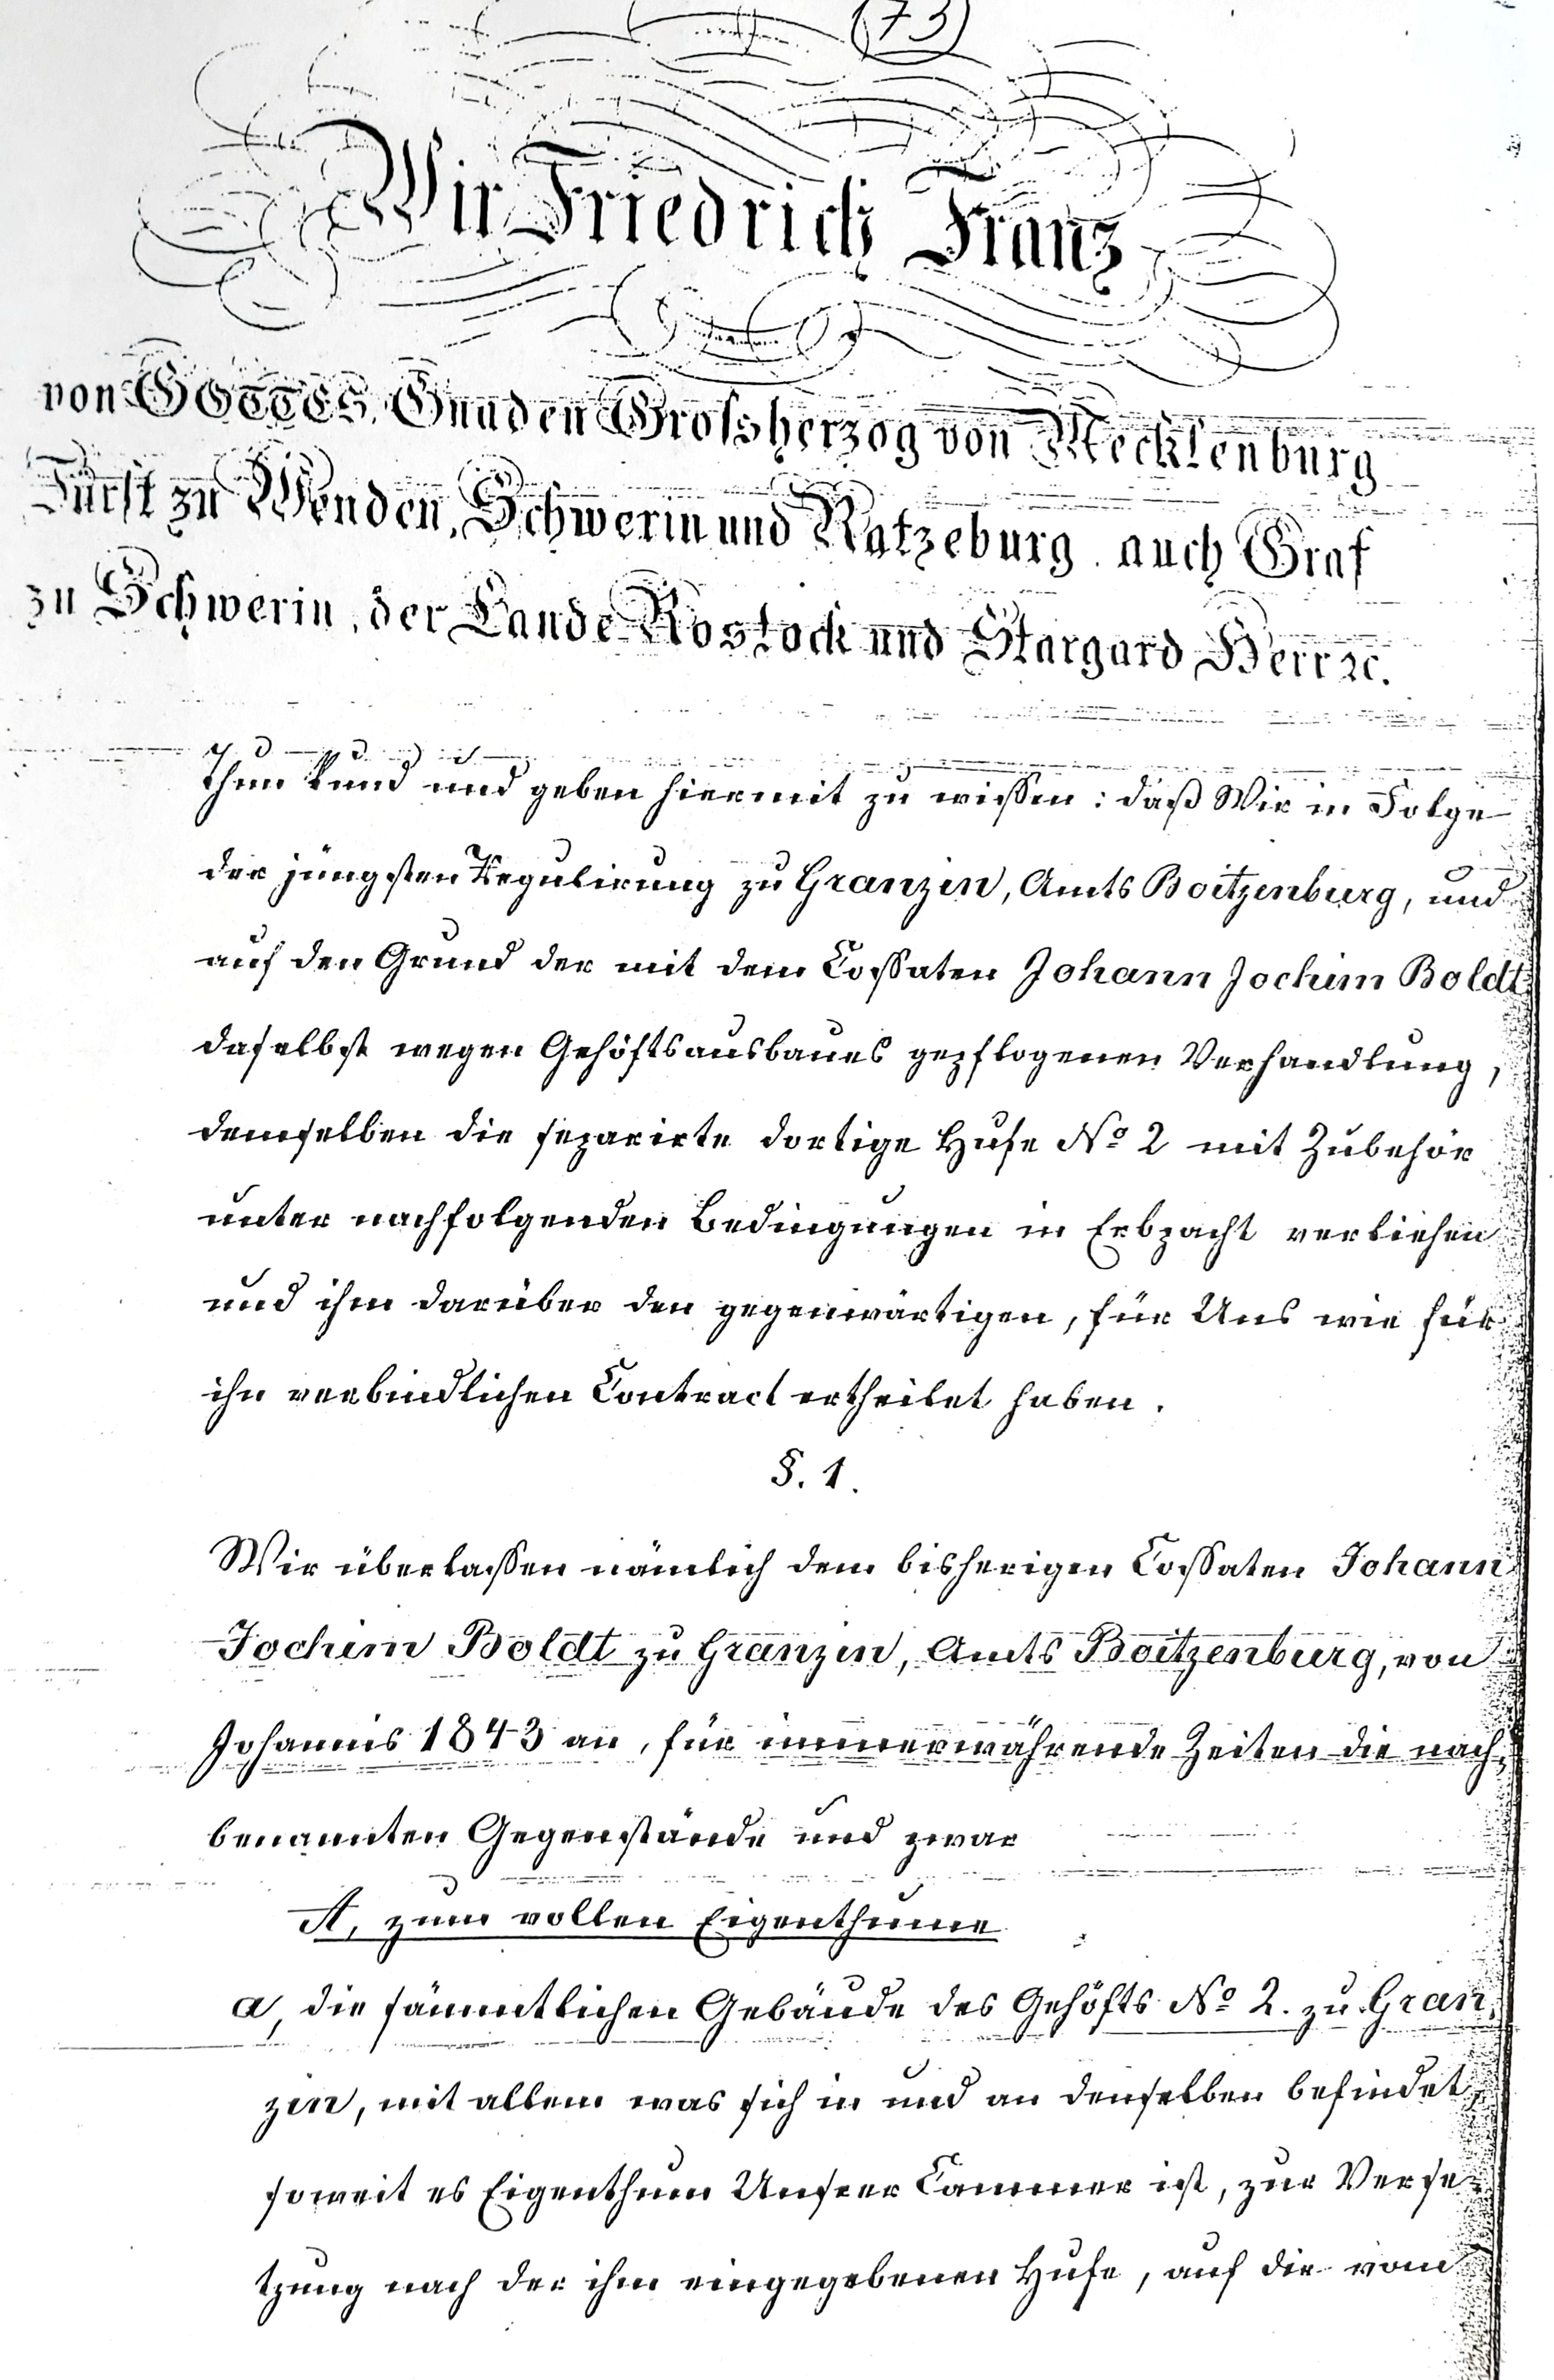 (73)
Wir Friedrich Franz
von GOTTES Gnaden Grossherzog von Mecklenburg
Fürst zu Wenden, Schwerin und Ratzeburg, auch Graf
zu Schwerin, der Lande Rostock und Stargard Herr ꝛc.
Thun kund und geben hiermit zu wissen: daß Wir in Folge
der jüngsten Regulirung zu Granzin, Amts Boitzenburg, und
auf den Grund der mit dem Cossaten Johann Jochim Boldt
daselbst wegen Gehöftsausbaues gepflogenen Verhandlung,
demselben die separirte dortige Hufe No 2 mit Zubehör
unter nachfolgenden Bedingungen in Erbpacht verliehen
und ihm darüber den gegenwärtigen, für Uns wie für
ihn verbindlichen Contract ertheilet haben.
§. 1.
Wir überlassen nämlich dem bisherigen Cossaten Johann
Jochim Boldt zu Granzin, Amts Boitzenburg, von
Johannis 1843 an, für immerwährende Zeiten die nach-
benannten Gegenstände und zwar
A, zum vollen Eigenthume
a, die sämmtlichen Gebäude des Gehöfts No 2. zu Gran-
zin, mit allem was sich in und an denselben befindet,
soweit es Eigenthum Unserer Cammer ist, zur Verse-
tzung nach der ihm eingegebenen Hufe, auf die vom